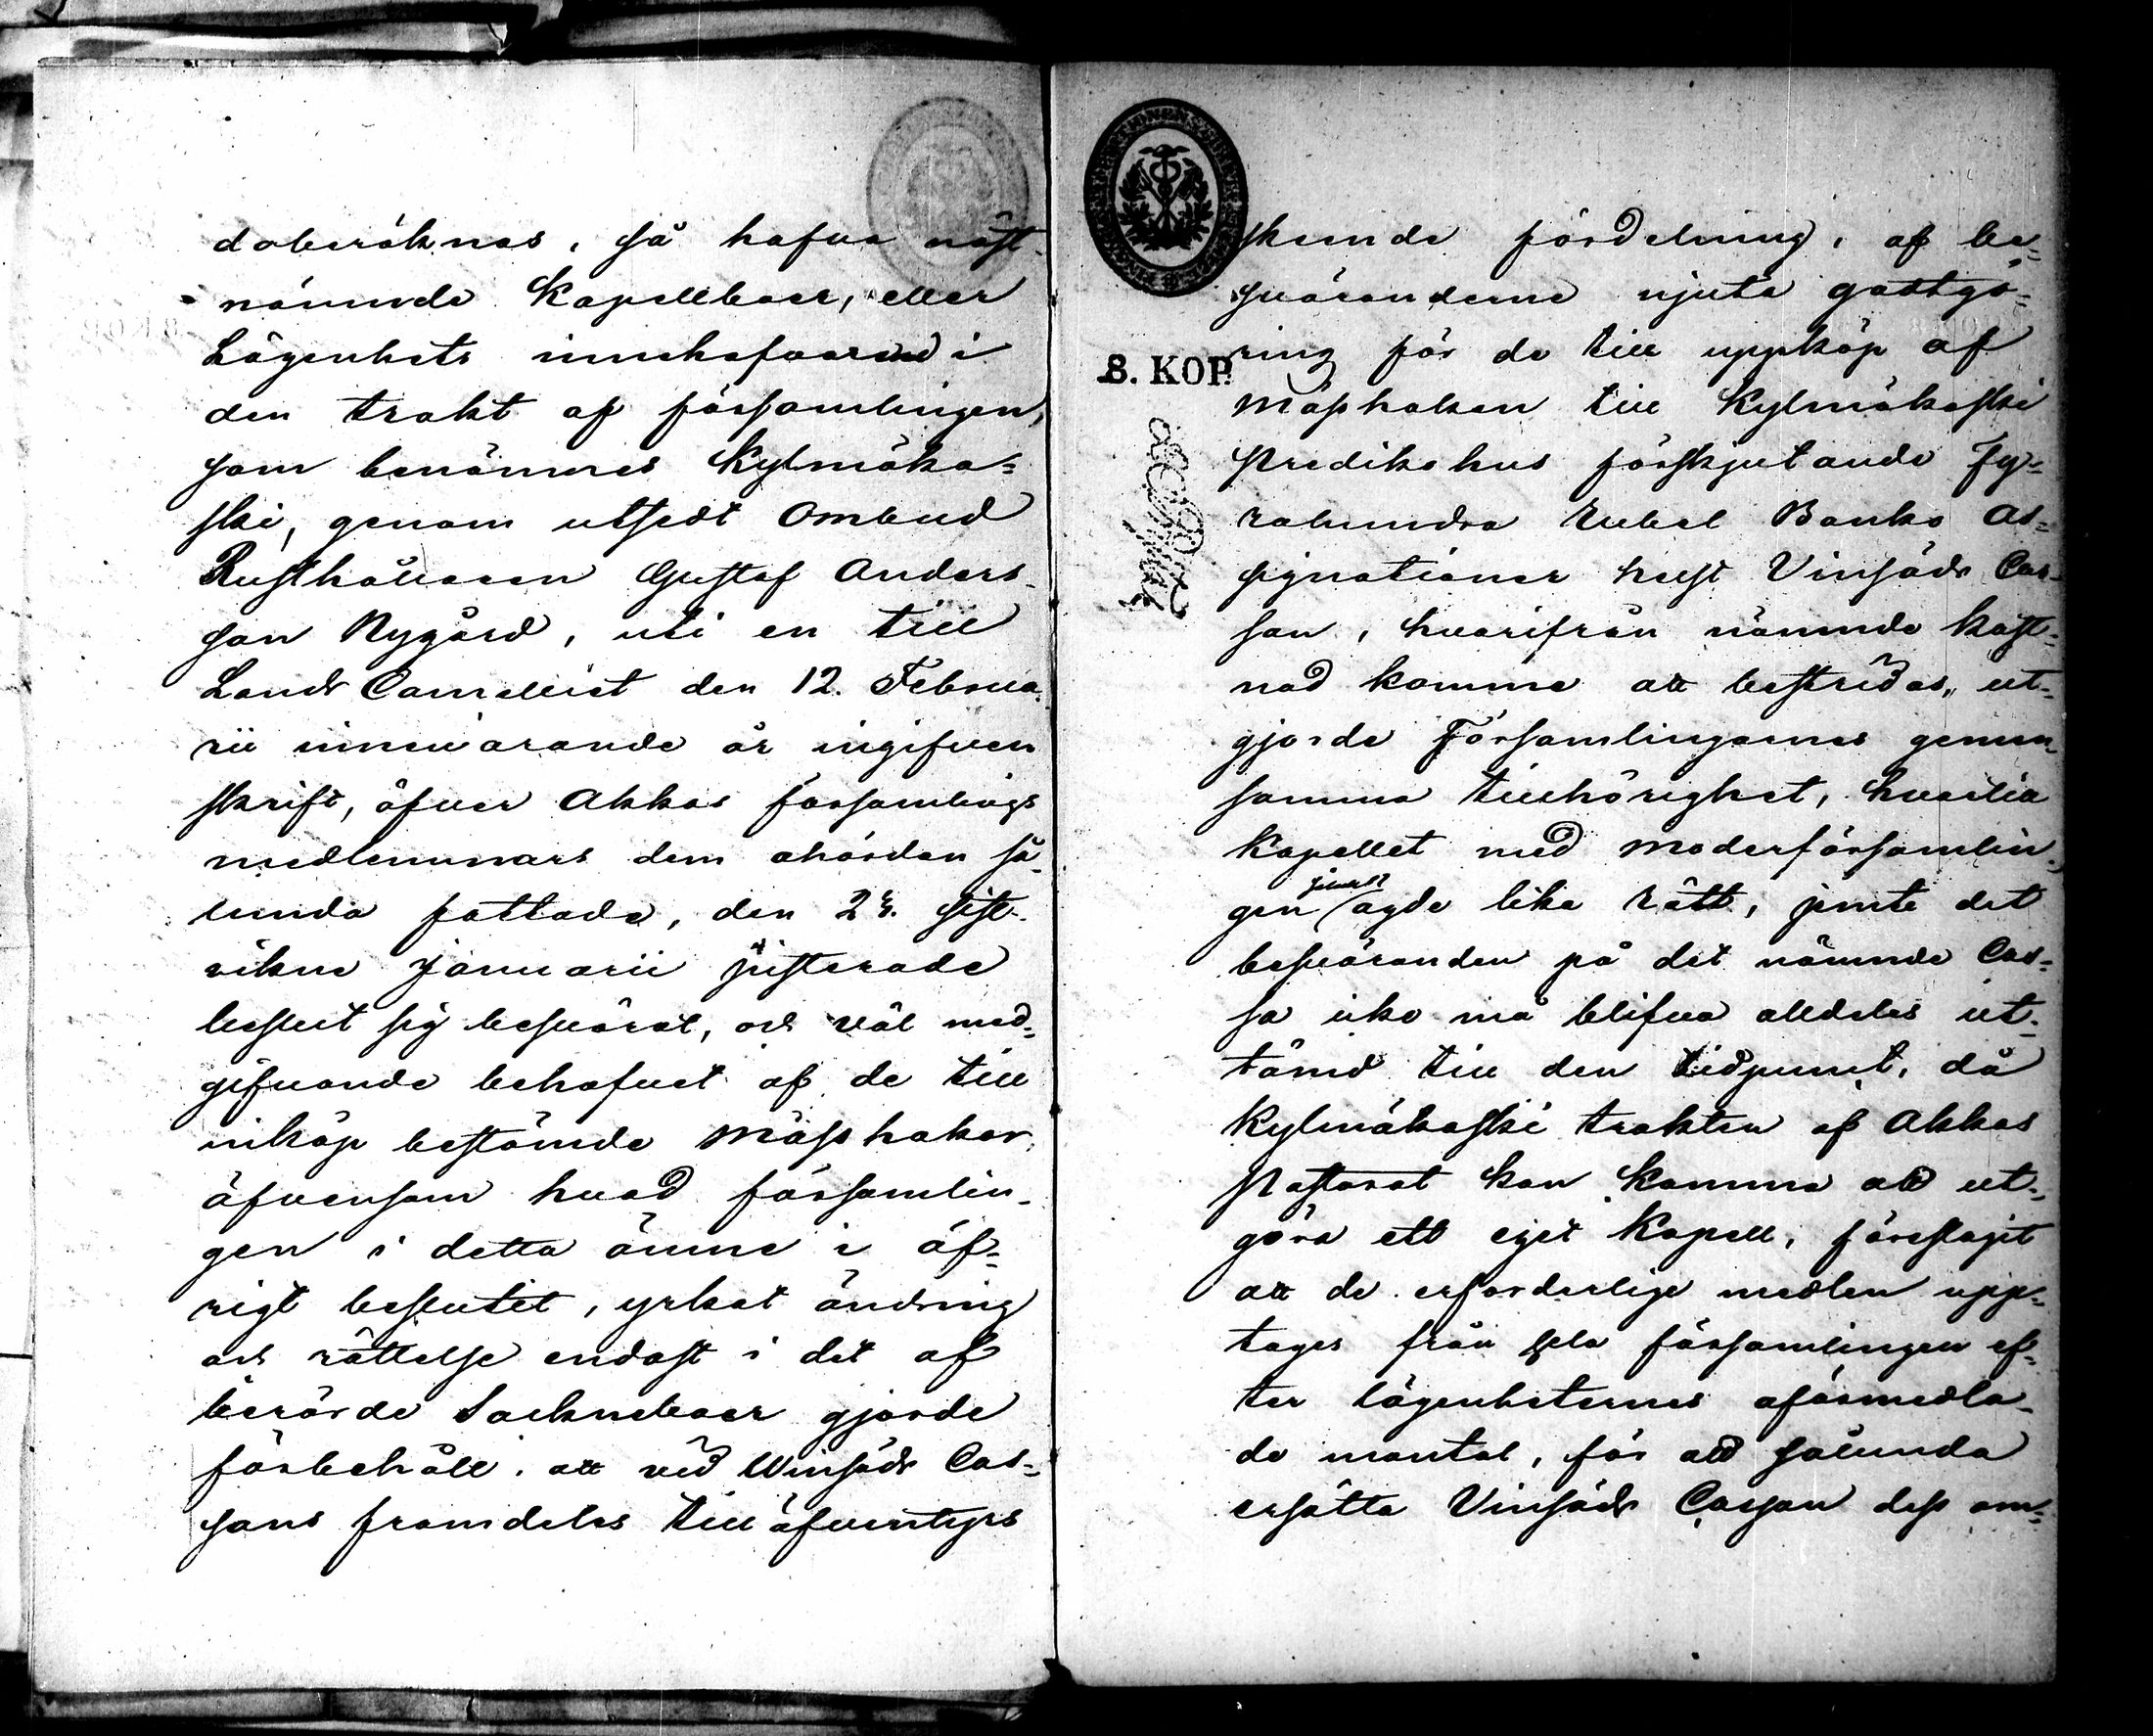 daberäknas, så hafva näst-
nämnde Kapellboer, eller
Lägenhets innehafvarne i
den trakt af församlingen,
som benämnes Kylmäko=
ski, genom utsedt Ombud
Rusthållaren Gustaf Anders-
son Nygård, uti en till
Lands Cancelliet den 12. Februa-
rii innevarande år ingifven
skrift, öfver Akkas församlings
medlemmars dem ohörden så-
lunda fattade, den sist-
vikne Januarii justerade
beslut sig besvärat, och väl med-
gifvande behofvet af de till
inköp bestämde Mässhakar,
äfvensom hvad församlin-
gen i detta ämne i öf-
rigt beslutet, yrkat ändring
och rättelse endast i det af
berörde Sockneboer gjorde
förbehåll, att vid Winsäds Cas-
sans framdeles till äfventyrs
skeende fördelning, af be-
sväranderne njuta godtgö-
ring för de till uppköp af
8. KOP.
Mässhaken till Kylmäkoski
Predikohus förskjutande Fy-
rahundra Rubel Banko As-
signationer hvilket Vinsäds Cas-
san, hvarifrån nämnde kost-
nad komme att bestridas, ut-
gjorde Församlingarnes gemen-
samma tillhörighet, hvartill
Kapellet med Moderförsamlin-
gen ägde lika rätt, jemte det
besväranden på det nämnde Cas-
sa icke må blifva alldeles ut-
tömd till den tidpunct, då
Kylmäkoski trakten af Akkas
Pastorat kan komma att ut-
göra ett eget Kapell, föreslagit
att de erforderlige medlen upp-
tages från hela församlingen ef-
ter lägenheternes oförmedla-
de mantal, för att sålunda
ersätta Vinsäds Cassan dess om-